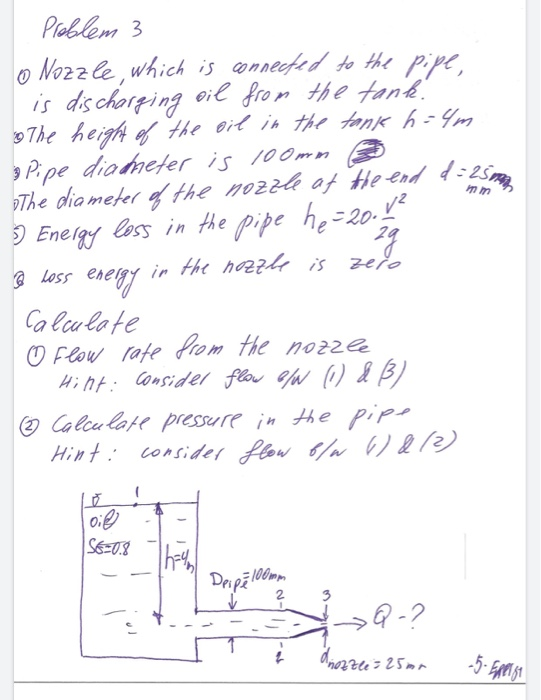 Problem 3
① Nozzle, which is connected to the pipe,
is discharging oil from the tank.
② The height of the oil in the tank h = 4m
③ Pipe diadmeter is 100mm
④ The diameter of the nozzle at the end d = 25 mm
⑤ Energy loss in the pipe he = 20 · V²/2g
⑥ Loss energy in the nozzle is zero
Calculate
① Flow rate from the nozzle
Hint: Consider flow b/w (1) & (3)
② Calculate pressure in the pipe
Hint: consider flow b/w (1) & (2)
1
oil
SG=0.8
h=4m
Dpipe=100mm
2 3
Q-?
2
dnozzle = 25mm
-5-